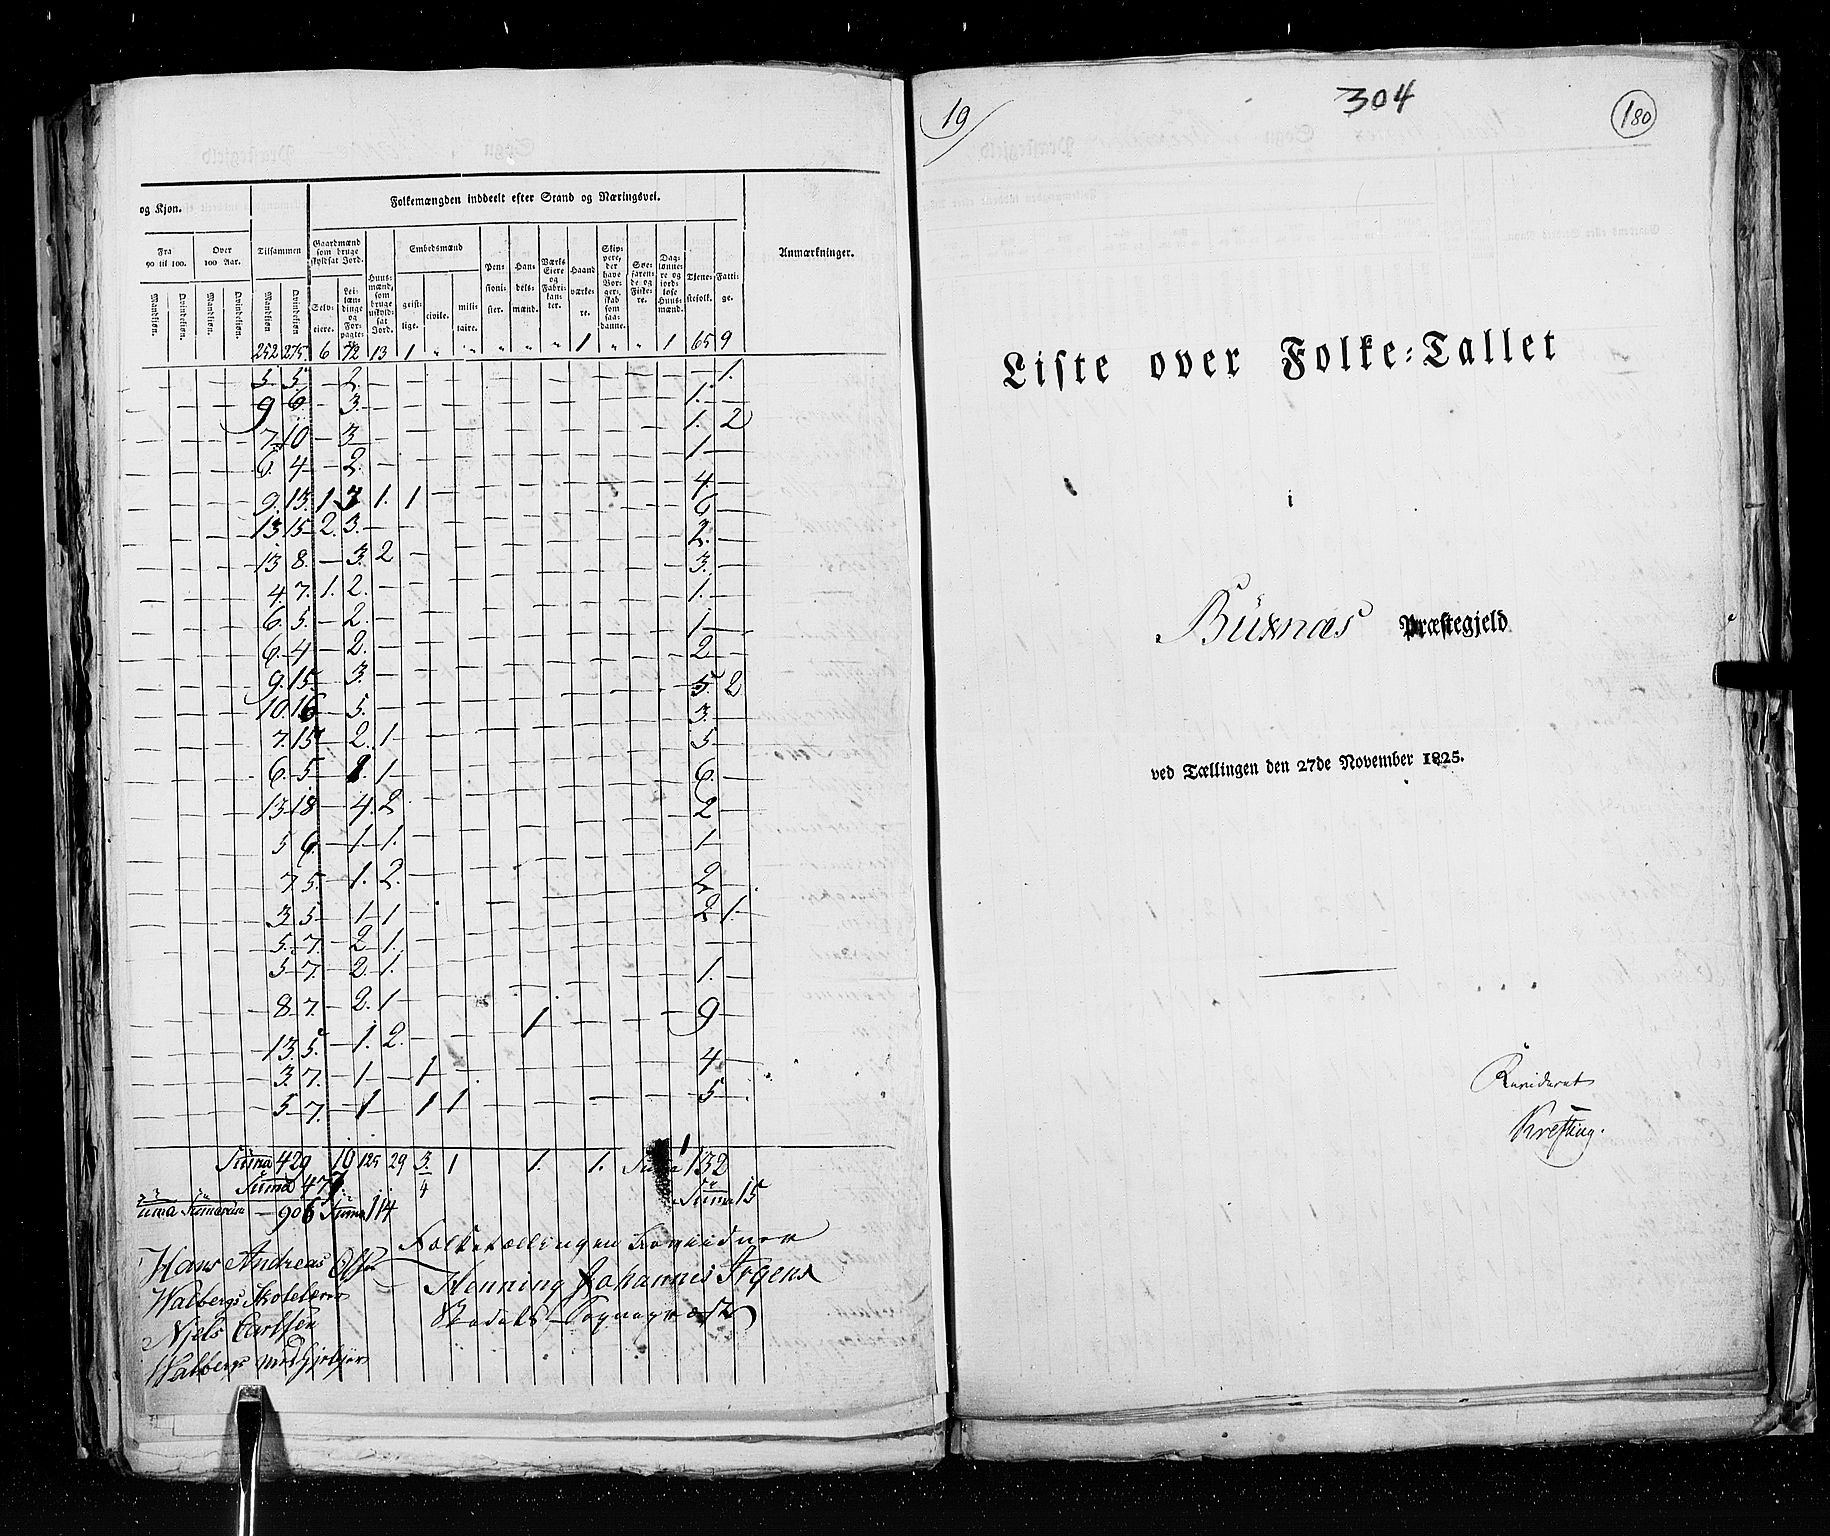 Folkemængden inddeelt efter Stand og Næringsvei.
og Kjøn.
Fra 90 til 100. Over 100 Aar. Tilsammen Gaardmænd som bruge skyldsat Jord. Huusmænd, som bruge uskyldsat Jord. Embedsmænd Pensionister. Handelsmænd. Værks Eiere og Fabrikanter. Haandværkere. Skippere, der have Borgerskab som saadanne. Søefarende og Fiskere. Daglønnere og jordløse Huusmænd. Tjenestefolk. Fattige. Anmærkninger.
Mandkjøn. Qvindekjøn. Mandkjøn. Qvindekjøn. Mandkjøn Qvindekjøn Selveiere. Leilændinge og Forpagtere geistlige. civile. militaire.
252 275. 6 72 13 1 " " " " " 1 " " 1 65 9
5 5. 2. 1.
9 6. 3. 1.
7. 10 3. 1. 2
6. 4 2. 1
9. 13. 1 3 1. 1 4.
13 15 2. 3. 6
13 8. 3. 2 2.
4. 7. 1. 2. 3.
6. 5. 2. 1.
6. 4 2. 1
9. 15. 3. 2
10. 16 5. 5. 2
7. 15 2. 1 3.
6. 5. 1 5
13 18 4. 2 6.
5 6. 1 1. 2
7 5. 1. 2. 1
3. 5 1 1 2
5. 7. 2 1. 2 1.
5 7. 2. 1.
8 7. 2. 1 1.
13. 5. 1. 2. 1 9
3. 7. 1 1 4
5. 7. 1 1 1 5
Suma 429 10 125 29 3 1 1. 1. 1 132
Suma 477. 4 Suma 15
Suma Sumarum 906 Suma 114
Folketællingen
Hans Andreas
Henning Johannes Irgens
Walbergs Skolelærer
Niels Carlsen
Sognepræst
Walbergs
19
304
180
Liste over Folke-Tallet
i
Buxnæs Præstegjeld
ved Tællingen den 27de November 1825.
Revideret
Kresting.